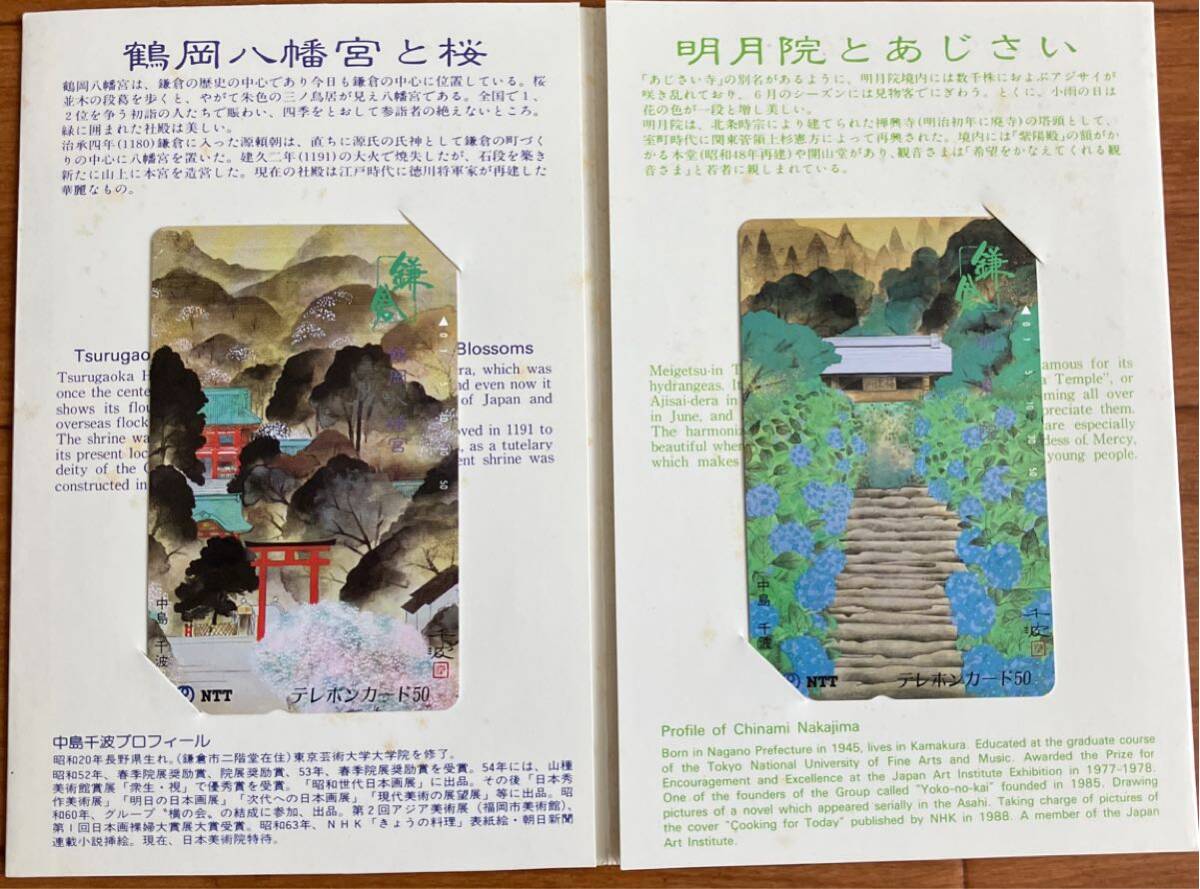 鶴岡八幡宮と桜
鶴岡八幡宮は、鎌倉の歴史の中心であり今日も鎌倉の中心に位置している。桜
並木の段葛を歩くと、やがて朱色の三ノ鳥居が見え八幡宮である。全国で1、
2位を争う初詣の人たちで賑わい、四季をとおして参詣者の絶えないところ。
緑に囲まれた社殿は美しい。
治承四年(1180)鎌倉に入った源頼朝は、直ちに源氏の氏神として鎌倉の町づく
りの中心に八幡宮を置いた。建久二年(1191)の大火で焼失したが、石段を築き
新たに山上に本宮を造営した。現在の社殿は江戸時代に徳川将軍家が再建した
華麗なもの。
鎌倉
Tsurugao Blossoms
Tsurugaoka H ra, which was
once the cente nd even now it
shows its flou of Japan and
overseas flock
The shrine wa oved in 1191 to
its present loc , as a tutelary
deity of the ent shrine was
constructed in
中島千波
千波
NTT テレホンカード50
中島千波プロフィール
昭和20年長野県生れ。(鎌倉市二階堂在住)東京芸術大学大学院を修了。
昭和52年、春季院展奨励賞、院展奨励賞、53年、春季院展奨励賞を受賞。54年には、山種
美術館賞展「衆生・視」で優秀賞を受賞。「昭和世代日本画展」に出品。その後「日本秀
作美術展」「明日の日本画展」「次代への日本画展」「現代美術の展望展」等に出品。昭
和60年、グループ〝横の会〟の結成に参加、出品。第2回アジア美術展(福岡市美術館)、
第1回日本画裸婦大賞展大賞受賞。昭和63年、NHK「きょうの料理」表紙絵・朝日新聞
連載小説挿絵。現在、日本美術院特待。
明月院とあじさい
「あじさい寺」の別名があるように、明月院境内には数千株におよぶアジサイが
咲き乱れており、6月のシーズンには見物客でにぎわう。とくに、小雨の日は
花の色が一段と増し美しい。
明月院は、北条時宗により建てられた禅興寺(明治初年に廃寺)の塔頭として、
室町時代に関東管領上杉憲方によって再興された。境内には「紫陽殿」の額がか
かる本堂(昭和48年再建)や開山堂があり、観音さまは「希望をかなえてくれる観
音さま」と若者に親しまれている。
鎌倉
Meigetsu-in T amous for its
hydrangeas. It a Temple", or
Ajisai-dera in ming all over
in June, and preciate them.
The harmoniz are especially
beautiful whe dess of Mercy,
which makes young people.
中島千波
千波
NTT テレホンカード50
Profile of Chinami Nakajima
Born in Nagano Prefecture in 1945, lives in Kamakura. Educated at the graduate course
of the Tokyo National University of Fine Arts and Music. Awarded the Prize for
Encouragement and Excellence at the Japan Art Institute Exhibition in 1977-1978.
One of the founders of the Group called "Yoko-no-kai" founded in 1985. Drawing
pictures of a novel which appeared serially in the Asahi. Taking charge of pictures of
the cover "Çooking for Today" published by NHK in 1988. A member of the Japan
Art Institute.